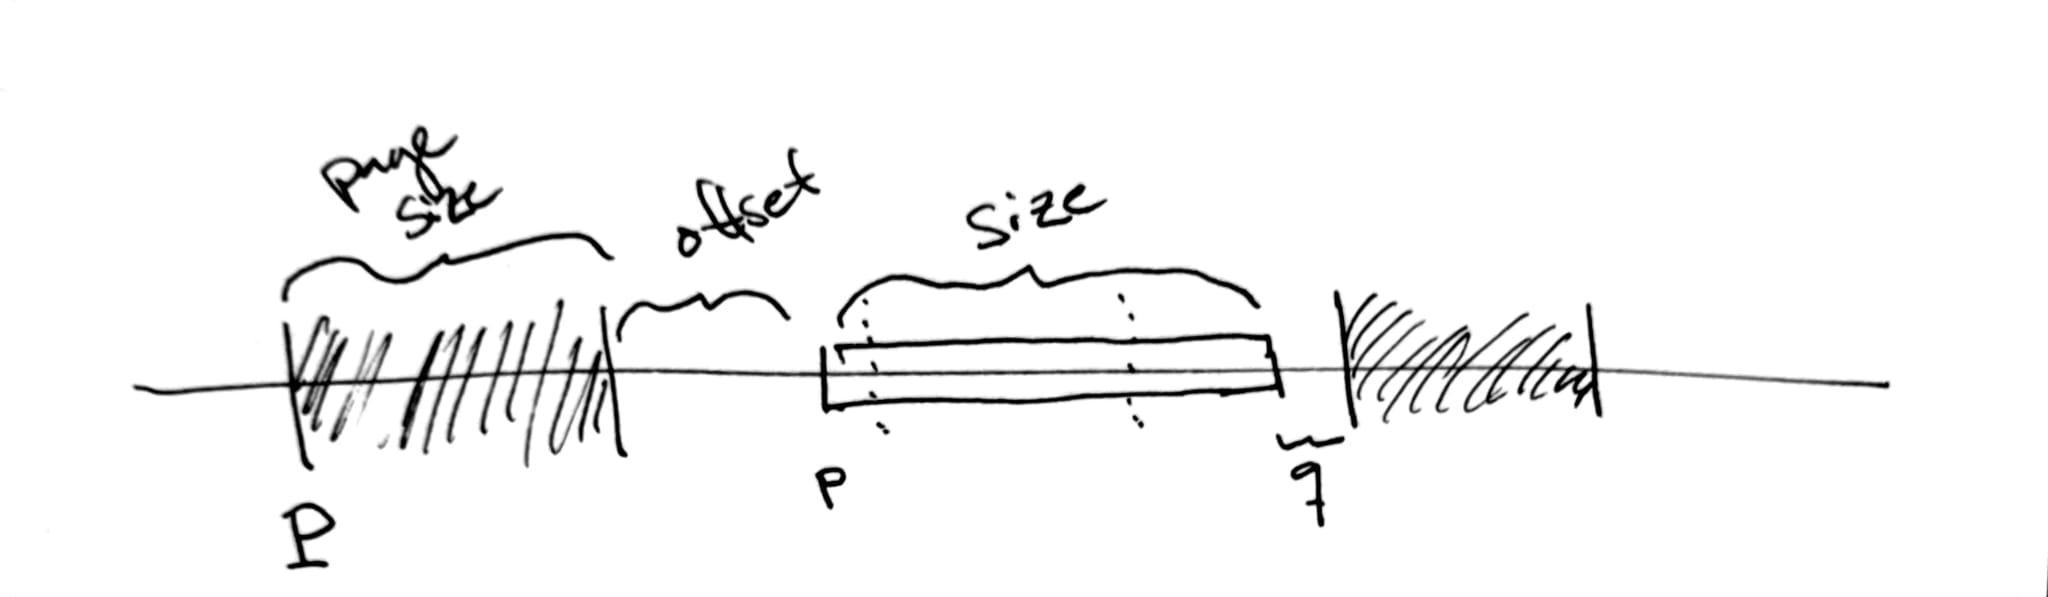 page
size
offset
size
P
q
P